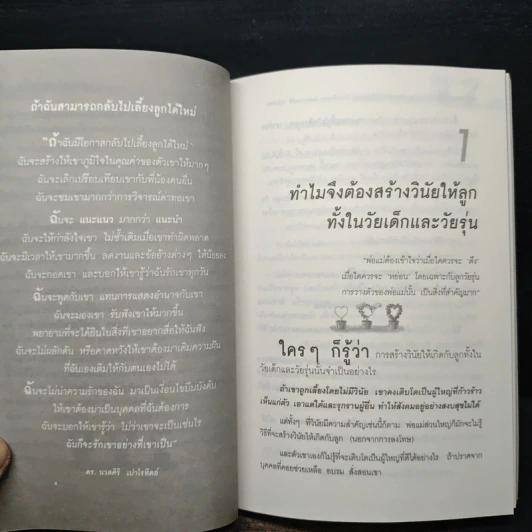 ถ้าฉันสามารถกลับไปเลี้ยงลูกได้ใหม่
"ถ้าฉันมีโอกาสกลับไปเลี้ยงลูกได้ใหม่
ฉันจะสร้างให้เขาภูมิใจในคุณค่าของตัวเขาให้มากๆ
ฉันจะเลิกเปรียบเทียบเขากับพี่น้องคนอื่น
ฉันจะชมเขามากกว่าการวิจารณ์ด่าทอเขา
ฉันจะ แนะแนว มากกว่า แนะนำ
ฉันจะให้กำลังใจเขา ไม่ซ้ำเติมเมื่อเขาทำผิดพลาด
ฉันจะมีเวลาให้เขามากขึ้น ลดงานและข้ออ้างต่างๆ ให้น้อยลง
ฉันจะกอดเขา และบอกให้เขารู้ว่าฉันรักเขาทุกวัน
ฉันจะพูดกับเขา แทนการแสดงอำนาจกับเขา
ฉันจะมองเขา รับฟังเขาให้มากขึ้น
พยายามที่จะได้ยินในสิ่งที่เขาอยากสื่อให้ฉันฟัง
ฉันจะไม่ผลักดัน หรือคาดหวังให้เขาต้องมาเติมความฝัน
ที่ฉันเองเติมให้กับตนเองไม่ได้
ฉันจะไม่นำความรักของฉัน มาเป็นเงื่อนไขบีบบังคับ
ให้เขาต้องมาเป็นบุคคลที่ฉันต้องการ
ฉันจะบอกให้เขารู้ว่า ไม่ว่าเขาจะเป็นเช่นไร
ฉันก็จะรักเขาอย่างที่เขาเป็น"
ดร. นวลศิริ เปาโรหิตย์
1
ทำไมจึงต้องสร้างวินัยให้ลูก
ทั้งในวัยเด็กและวัยรุ่น
"พ่อแม่ต้องเข้าใจว่าเมื่อใดควรจะ 'ตึง'
เมื่อใดควรจะ 'หย่อน' โดยเฉพาะกับลูกวัยรุ่น
การวางตัวของพ่อแม่นั้น เป็นสิ่งที่สำคัญมาก"
ใครๆ ก็รู้ว่า การสร้างวินัยให้เกิดกับลูกทั้งใน
วัยเด็กและวัยรุ่นนั้นจำเป็นอย่างไร
ถ้าเขาถูกเลี้ยงโดยไม่มีวินัย เขาคงเติบโตเป็นผู้ใหญ่ที่ก้าวร้าว
เห็นแก่ตัว เอาแต่ใจและรุกรานผู้อื่น ทำให้สังคมอยู่อย่างสงบสุขไม่ได้
แต่ทั้งๆ ที่วินัยมีความสำคัญเช่นนี้ก็ตาม พ่อแม่ส่วนใหญ่ก็มักจะไม่รู้
วิธีที่จะสร้างวินัยให้เกิดกับลูก (นอกจากการลงโทษ)
และตัวเขาเองก็ไม่รู้ที่จะเติบโตเป็นผู้ใหญ่ที่ดีได้อย่างไร ถ้าปราศจาก
บุคคลที่คอยช่วยเหลือ อบรม สั่งสอนเขา